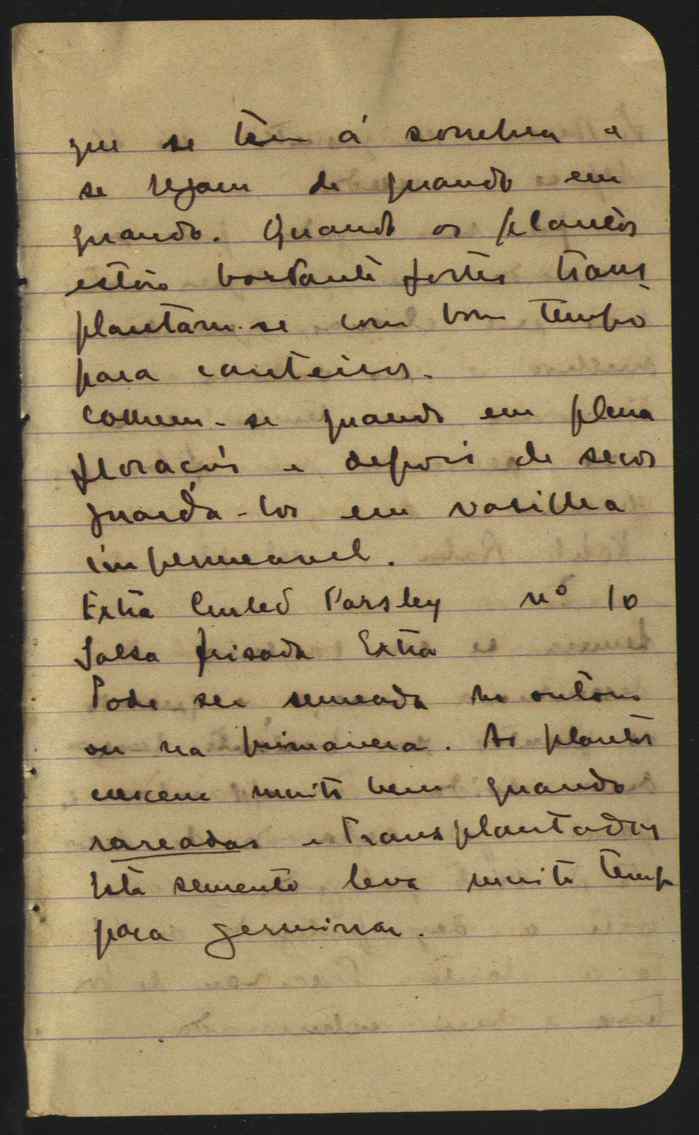 que se têm á sombra e
se regam de quando em
quando. Quando as plantas
estão bastante fortes trans
plantam-se com bom tempo
para canteiros.
Colhem-se quando em plena
floração e depois de secos
guarda-los em vasilha
impermeavel.
Extra Curled Parsley nº 10
Salsa frisada Extra
Pode ser semeada no outono
ou na primavera. As plantas
crescem muito bem quando
rareadas e transplantadas
Esta semente leva muito tempo
para germinar.